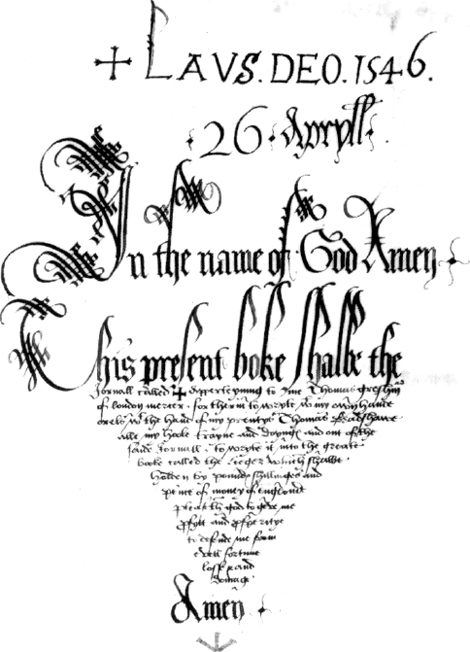 ✝ LAVS. DEO. 1546.
26 Apryll
In the name of God Amen
This present boke shalbe the
Jornall called ✝ apperteynyng to me Thomas Gresham
of london mercer. for therin to wryte w my owyn hande
orels w the hand of my prentys Thomas Bradshawe
alle my hoole trayne and doyings and out of the
saide Jornall to wryte it into the greate
booke called the Leger which shalbe
holden by pounds shillinges and
pence of money of england
pleaseth god to geve me
profytt and prosperitye
to defende me from
evell fortune
losse and
domage
Amen